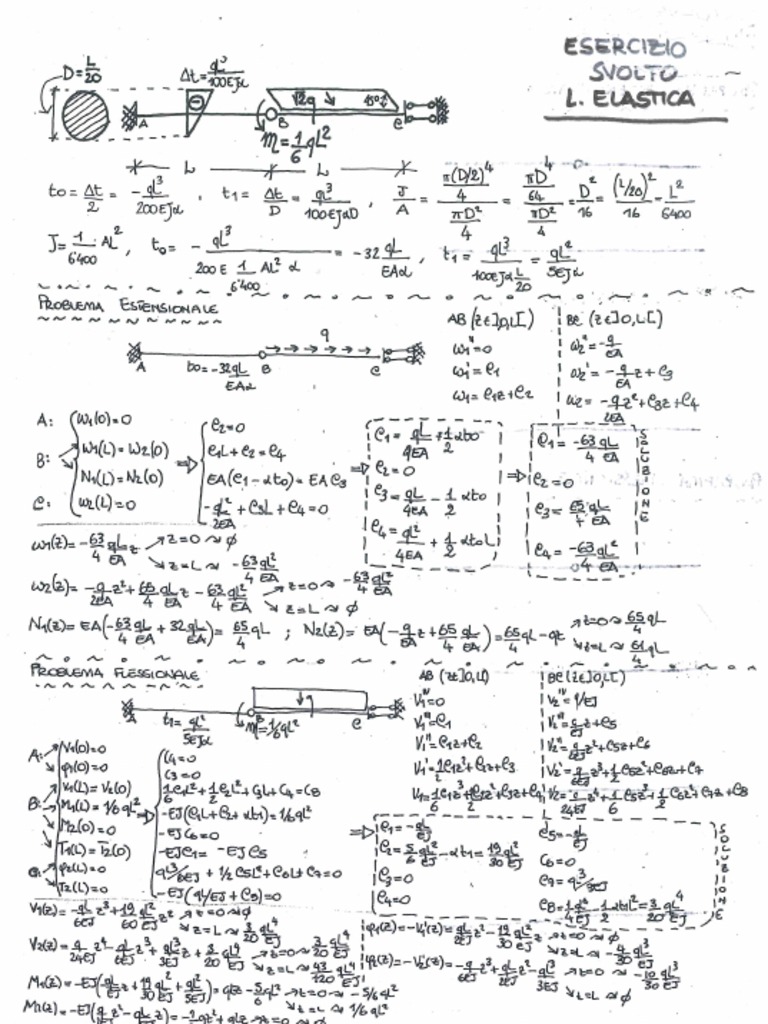 ESERCIZIO
SVOLTO
L. ELASTICA
D=L/20
Δt=qL³/100EJα
A B C
√2q 45°
m=1/6 qL²
L L
t0=Δt/2=-qL³/200EJα, t1=Δt/D=qL³/100EJαD, J/A=(π(D/2)⁴/4)/(πD²/4)=(πD⁴/64)/(πD²/4)=D²/16=(L/20)²/16=L²/6400
J=1/6400 AL², t0=-qL³/(200E 1/6400 AL² α)=-32 qL/EAα, t1=qL³/(100EJα L/20)=qL²/5EJα
PROBLEMA ESTENSIONALE
q
A B C
t0=-32qL/EAα
AB (z∈]0,L[)
w1''=0
w1'=C1
w1=C1z+C2
BC (z∈]0,L[)
w2''=-q/EA
w2'=-q/EA z+C3
w2=-q/2EA z²+C3z+C4
A: w1(0)=0
B: w1(L)=w2(0)
N1(L)=N2(0)
C: w2(L)=0
⇒ C2=0
C1L+C2=C4
EA(C1-αt0)=EAC3
-qL²/2EA+C3L+C4=0
⇒ C1=qL/4EA+1/2 αt0
C2=0
C3=qL/4EA-1/2 αt0
C4=qL²/4EA+1/2 αt0L
⇒ C1=-63/4 qL/EA
C2=0
C3=65/4 qL/EA
C4=-63/4 qL²/EA
SOLUZIONE
w1(z)=-63/4 qL/EA z z=0 ≈ ∅
z=L ≈ -63/4 qL²/EA
w2(z)=-q/2EA z²+65/4 qL/EA z-63/4 qL²/EA z=0 ≈ -63/4 qL²/EA
z=L ≈ ∅
N1(z)=EA(-63/4 qL/EA+32qL/EA)=65/4 qL ; N2(z)=EA(-q/EA z+65/4 qL/EA)=65/4 qL-qz z=0 ≈ 65/4 qL
z=L ≈ 61/4 qL
PROBLEMA FLESSIONALE
q
A B C
t1=qL²/5EJα
m=1/6qL²
AB (z∈]0,L[)
V1''''=0
V1'''=C1
V1''=C1z+C2
V1'=1/2C1z²+C2z+C3
V1=1/6C1z³+1/2C2z²+C3z+C4
BC (z∈]0,L[)
V2''''=q/EJ
V2'''=q/EJ z+C5
V2''=q/2EJ z²+C5z+C6
V2'=q/6EJ z³+1/2C5z²+C6z+C7
V2=q/24EJ z⁴+1/6C5z³+1/2C6z²+C7z+C8
A: V1(0)=0
φ1(0)=0
B: V1(L)=V2(0)
M1(L)=1/6qL²
M2(0)=0
T1(L)=T2(0)
C: φ2(L)=0
T2(L)=0
⇒ C4=0
C3=0
1/6C1L³+1/2C2L²+C3L+C4=C8
-EJ(C1L+C2+αt1)=1/6qL²
-EJC6=0
-EJC1=-EJC5
qL³/6EJ+1/2C5L²+C6L+C7=0
-EJ(qL/EJ+C5)=0
⇒ C1=-qL/EJ
C2=5/6 qL²/EJ-αt1=19/30 qL²/EJ
C3=0
C4=0
C5=-qL/EJ
C6=0
C7=qL³/3EJ
C8=1/4 qL⁴/EJ-1/2 αt1L²=3/20 qL⁴/EJ
SOLUZIONE
V1(z)=-qL/6EJ z³+19/60 qL²/EJ z² z=0 ≈ ∅
z=L ≈ 3/20 qL⁴/EJ
V2(z)=q/24EJ z⁴-qL/6EJ z³+qL³/3EJ z+3/20 qL⁴/EJ z=0 ≈ 3/20 qL⁴/EJ
z=L ≈ 43/120 qL⁴/EJ
φ1(z)=-V1'(z)=qL/2EJ z²-19/30 qL²/EJ z z=0 ≈ ∅
z=L ≈ -4/30 qL³/EJ
φ2(z)=-V2'(z)=-q/6EJ z³+qL/2EJ z²-qL³/3EJ z=0 ≈ -10/30 qL³/EJ
z=L ≈ ∅
M1(z)=-EJ(-qL/EJ z+19/30 qL²/EJ+qL²/5EJ)=qLz-5/6qL² z=0 ≈ -5/6qL²
z=L ≈ 1/6qL²
M2(z)=-EJ(q/2EJ z²-qL/EJ z)=-1/2qz²+qLz z=0 ≈ ∅